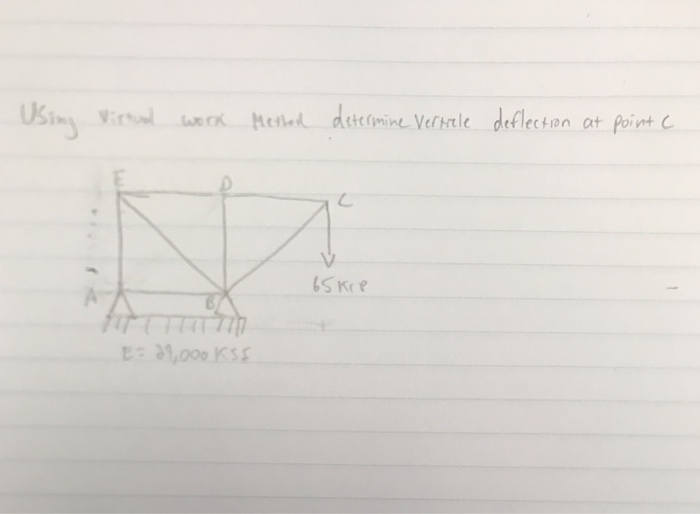 Using virtual work Method determine Verticle deflection at point C
E
D
C
A
B
65 Kip
E = 29,000 KSI